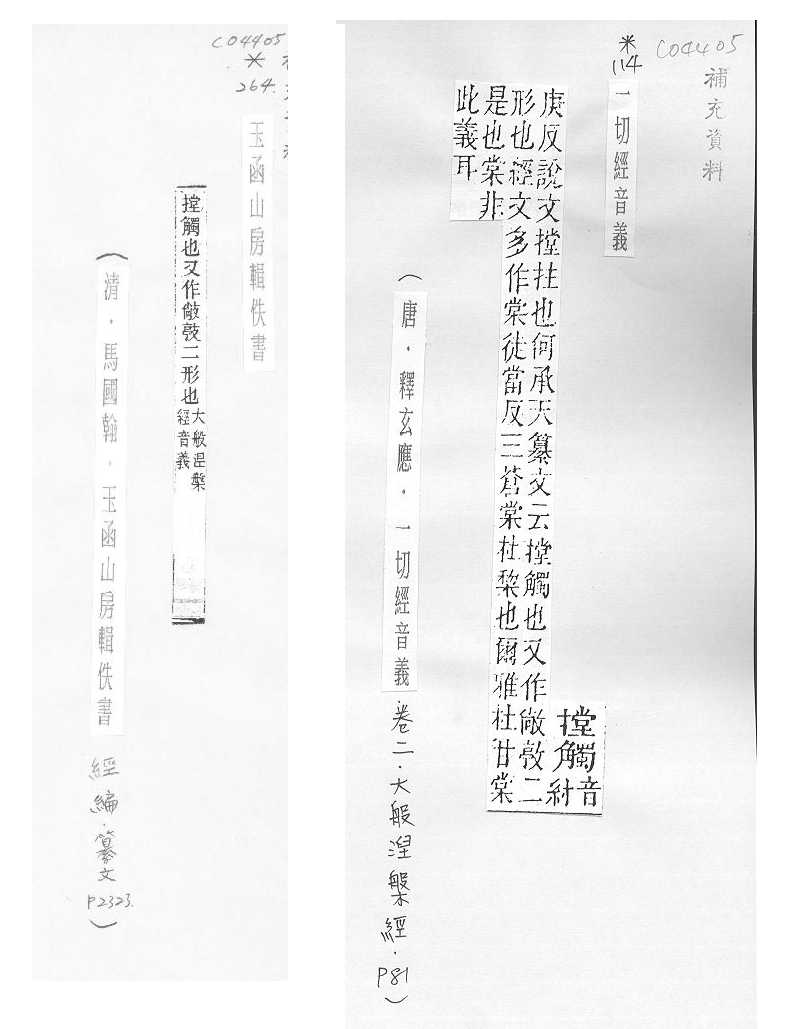 C04405
*
264.
玉函山房輯佚書
摚觸也又作敞二形也
大般涅槃
經音義
(清．馬國翰．玉函山房輯佚書 經編．纂文 P2323.)
C04405
*
114
補充資料
一切經音義
摚觸音
紂
庚反說文摚拄也何承天纂文云摚觸也又作敞二
形也經文多作棠徒當反三蒼棠杜棃也爾雅杜甘棠
是也棠非
此義耳
(唐．釋玄應．一切經音義 卷二．大般涅槃經．P81)